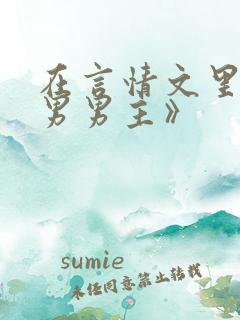 在言情文里
男男主》
sumie
未经同意禁止转载